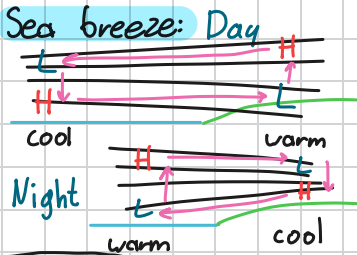 Sea breeze: Day
L H
H L
cool warm
Night H L
L H
warm cool